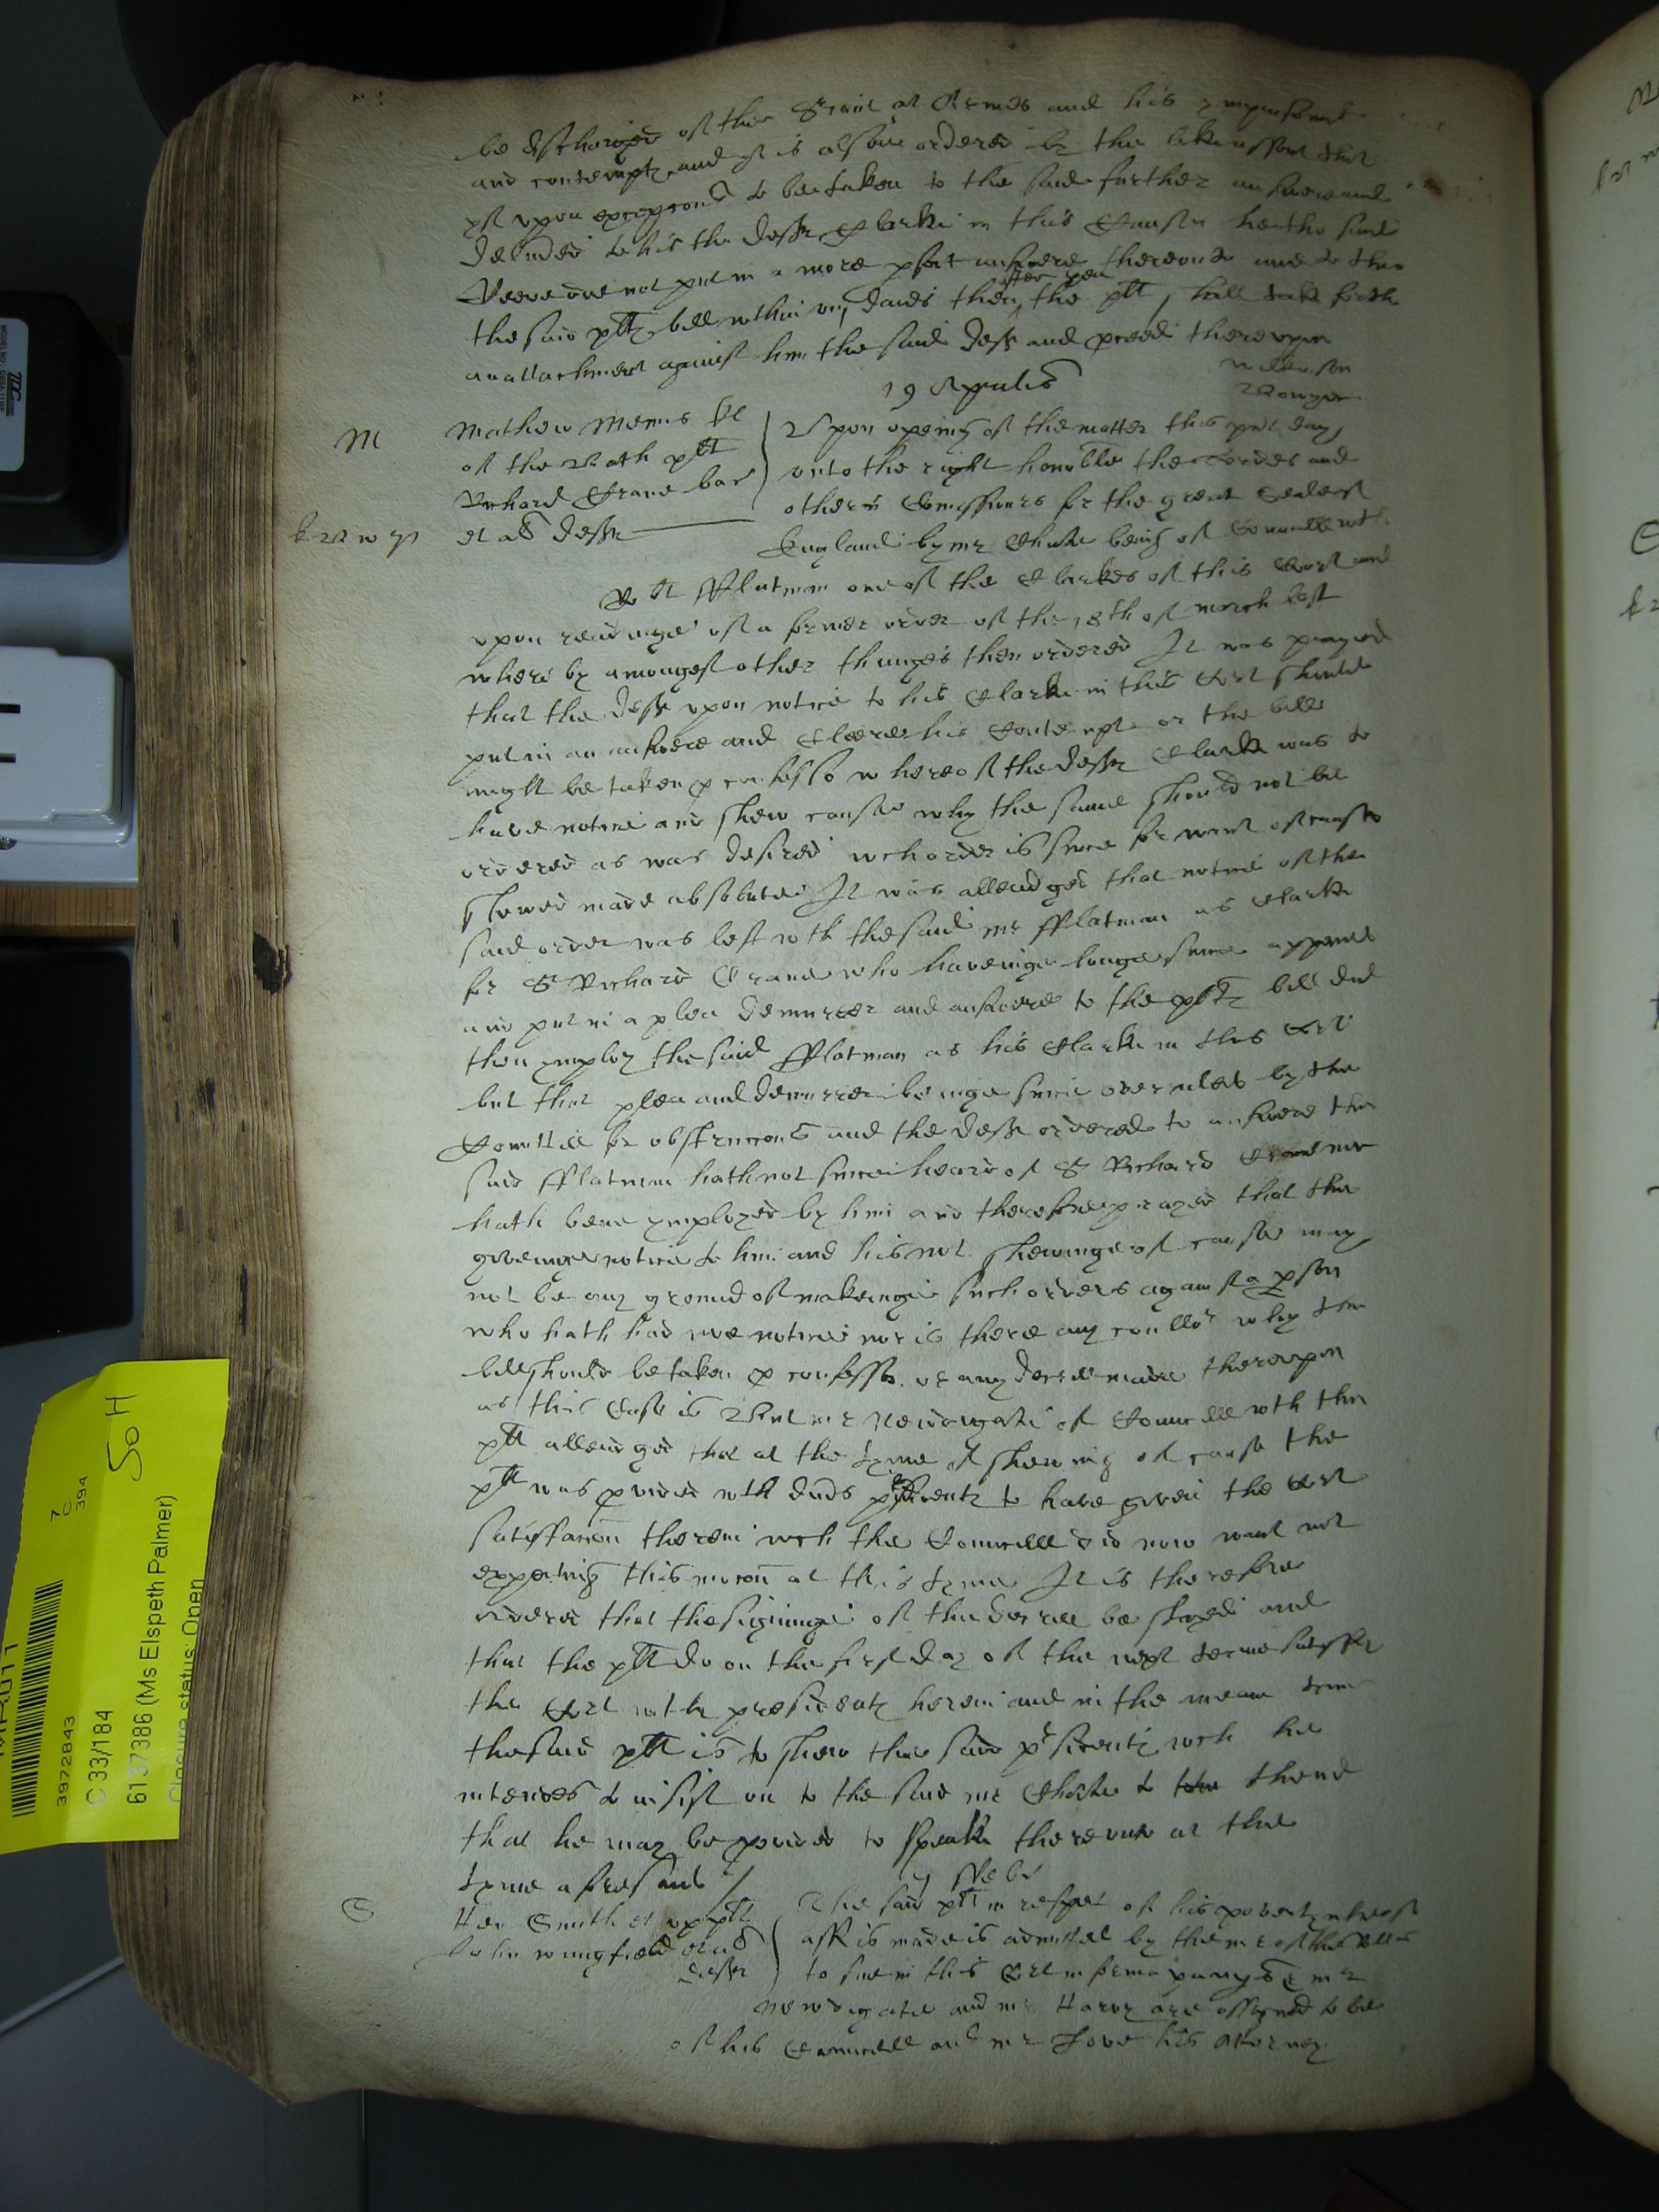 be discharged of the Seriant at Armes and his imprisonmt
and contempt and it is alsoe ordered by the like assent that
if upon excepcons to bee taken to the said further answere and
delivred to his the defts Clarke in this Cause hee the said
doe not put in a more pfect answere thereunto and to the
the said plts bill within daies then after yea the plt shall take forth
an attachment against him the said deft and pceed thereupon
19 Aprilis
M
Mathew Mennes kt
of the Bath plt
Richard Crane bar
et als defts
Upon opening of the matter this pnt day
unto the right honoble the Lordes and
others Comissioners for the great Seale of
England by mr Chute being of Councell wth
Fflatman one of the Clarkes of this Cort and
upon readinge of a former order of the 18th of march last
whereby amongest other thinges then ordered It was prayed
that the deft upon notice to his Clarke in this Cort should
put in an answere and Cleere his Contempt or the bill
might be taken p confesso whereof the defts Clarke was to
have notice and shew cause why the same should not be
ordered as was desired wch order is since for want of cause
shewed made absolute It was alleadged that notice of the
said order was left wth the said mr Fflatman as Clarke
for Sr Richard Crane who haveinge longe since appeared
and put in a plea demurrer and answere to the plts bill did
then imploy the said Fflatman as his Clarke in this Cort
but that plea and demurrer beinge since overruled by the
Comittee for obstruccons and the deft ordered to answere the
said Fflatman hath not since heard of Sr Richard Crane nor
hath bene imployed by him and therefore prayed that the
giveinge notice to him and his not shewinge of cause may
not be any ground of makeinge such orders against a pson
who hath had noe notice nor is there any coullor why the
bill should be taken p confesso or any decree made thereupon
as this Case is But mr Newdigate of Councell wth the
plt alleadged that at the tyme of shewing of cause the
plt was pvided wth divs psidents to have given the Cort
satisfaccon therein wch the Councell did now want not
expecting this mocon at this tyme It is therefore
ordered that the signinge of the decree be stayed and
that the plt do on the first day of the next terme satisfy
the Cort wth presidents herein and in the meane tyme
the said plt is to shew the said psidents wch he
intendes to insist on to the said mr Chute to thend
that he may be pvided to speake thereunto at the
tyme aforesaid
S
Hen Smith et ux plts
John Wingfield et als
defts
Ffebr
The said plt in respect of his poverty whereof
affid is made is admitted by the mr of the Rolles
to sue in this Cort in forma pauperis & mr
Newdigate and mr Harvy are assigned to be
of his Councell and mr Love his Attorney
3972843
7
C
394
C 33/184
6137386 (Ms Elspeth Palmer)
Closure status: Open
SoH